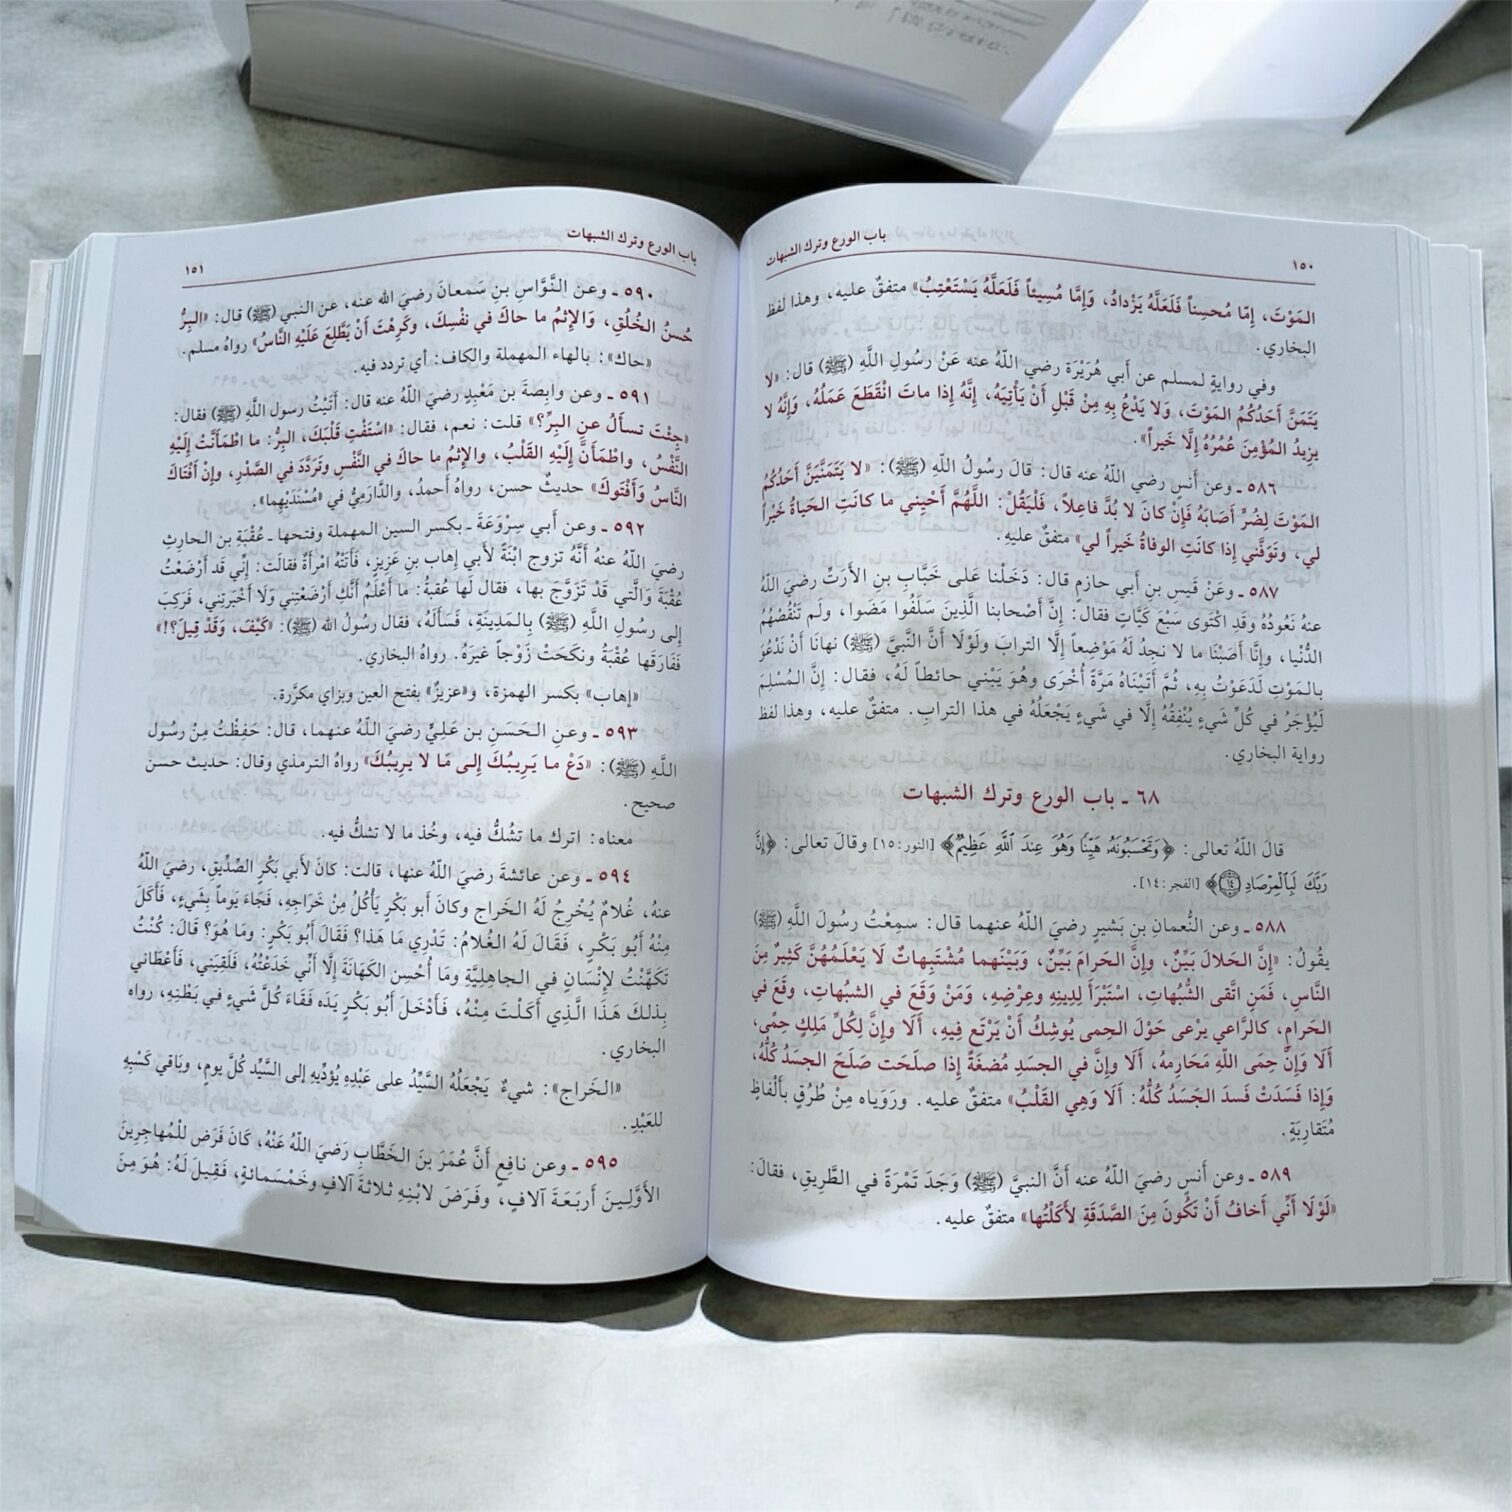 باب الورع وترك الشبهات
١٥٠
المَوْتَ، إمّا مُحسِناً فَلَعَلَّهُ يَزْدادُ، وَإمَّا مُسِيئاً فَلَعَلَّهُ يَسْتَعْتِبُ» متفقٌ عليه، وهذا لفظ
البخاري.
وفي روايةٍ لمسلم عن أبي هُرَيْرَة رضي اللّهُ عنه عَنْ رسُولِ اللَّهِ (ﷺ) قال: «لا
يَتَمَنَّ أَحَدُكُمُ المَوْتَ، وَلا يَدْعُ بِهِ مِنْ قَبْلِ أَنْ يَأْتِيَهُ، إِنَّهُ إذا ماتَ انْقَطَعَ عَمَلُهُ، وَإنَّهُ لا
يزيدُ المُؤْمِنَ عُمُرُهُ إلَّا خَيراً».
٥٨٦ ـ وعن أنسٍ رضي اللّهُ عنه قال: قالَ رسُولُ اللَّهِ (ﷺ): «لا يَتَمَنَّيَنَّ أَحَدُكُمُ
المَوْتَ لِضُرٍّ أَصَابَهُ فَإِنْ كانَ لا بُدَّ فاعِلاً، فَلْيَقُلْ: اللَّهُمَّ أَحْيِني ما كانَتِ الحَياةُ خَيْراً
لي، وتَوَفَّني إذا كانَتِ الوفاةُ خَيراً لي» متفقٌ عليهِ.
٥٨٧ ـ وعَنْ قَيسِ بنِ أبي حازمٍ قال: دَخَلْنا عَلى خَبَّابِ بنِ الأرَتِّ رضيَ اللّهُ
عنهُ نَعُودُهُ وقَدِ اكْتَوَى سَبْعَ كَيَّاتٍ فقال: إنَّ أَصْحابنا الَّذِينَ سَلَفُوا مَضَوا، ولَم تَنْقُصْهُمُ
الدُّنْيا، وإنَّا أَصَبْنَا ما لا نجِدُ لَهُ مَوْضِعاً إلَّا الترابَ ولَوْلَا أَنَّ النَّبيَّ (ﷺ) نهانَا أَنْ نَدْعُوَ
بالمَوْتِ لَدَعَوْتُ بِهِ، ثُمَّ أَتَيْنَاهُ مَرَّةً أُخْرَى وهُوَ يَبْني حائطاً لَهُ، فقال: إنَّ المُسْلِمَ
لَيُؤْجَرُ في كُلِّ شَيءٍ يُنْفِقُهُ إلَّا في شَيءٍ يَجْعَلُهُ في هذا الترابِ. متفقٌ عليه، وهذا لفظ
رواية البخاري.
٦٨ ـ باب الورع وترك الشبهات
قالَ اللّهُ تعالى: ﴿وَتَحْسَبُونَهُ هَيِّنًا وَهُوَ عِندَ ٱللَّهِ عَظِيمٌ﴾ [النور: ١٥] وقالَ تعالى: ﴿إِنَّ
رَبَّكَ لَبِٱلْمِرْصَادِ ۝١٤﴾ [الفجر: ١٤].
٥٨٨ ـ وعن النُّعمانِ بن بَشيرٍ رضيَ اللّهُ عنهما قال: سمِعْتُ رسُولَ اللَّهِ (ﷺ)
يقُولُ: «إنَّ الحَلالَ بَيِّنٌ، وإنَّ الحَرامَ بَيِّنٌ، وَبَيْنَهما مُشْتَبِهاتٌ لا يَعْلَمُهُنَّ كَثِيرٌ مِنَ
النَّاسِ، فَمَنِ اتَّقى الشُّبُهاتِ، اسْتَبْرَأَ لِدِينِهِ وعِرْضِهِ، وَمَنْ وَقَعَ في الشبُهاتِ، وقَعَ في
الحَرامِ، كالرَّاعي يرْعى حَوْلَ الحِمى يُوشِكُ أَنْ يَرْتَع فِيهِ، أَلَا وإنَّ لِكُلِّ مَلِكٍ حِمًى،
أَلَا وَإِنَّ حِمَى اللَّهِ مَحَارِمهُ، أَلَا وإنَّ في الجسَدِ مُضغَةً إذا صلَحَت صَلَحَ الجسَدُ كُلُّهُ،
وَإذا فَسَدَتْ فَسدَ الجَسَدُ كُلُّهُ: أَلَا وَهِي القَلْبُ» متفقٌ عليه. ورَوَياه مِنْ طُرُقٍ بأَلْفاظٍ
مُتَقارِبَةٍ.
٥٨٩ ـ وعن أنسٍ رضيَ اللّهُ عنه أَنَّ النبيَّ (ﷺ) وَجَدَ تَمْرَةً في الطَّرِيقِ، فقالَ:
«لَوْلَا أَنِّي أَخافُ أَنْ تَكُونَ مِنَ الصَّدَقَةِ لأَكَلْتُها» متفقٌ عليه.
باب الورع وترك الشبهات
١٥١
٥٩٠ ـ وعن النَّوَّاسِ بنِ سَمعانَ رضيَ الله عنه، عن النبي (ﷺ) قال: «البِرُّ
حُسنُ الخُلُقِ، وَالإِثمُ ما حاكَ في نفْسِكَ، وكَرِهْتَ أَنْ يَطَّلِعَ عَلَيْهِ النَّاسُ» رواهُ مسلم.
«حاكَ»: بالهاء المهملة والكاف: أي تردد فيه.
٥٩١ ـ وعن وابِصَةَ بن مَعْبِدٍ رضيَ اللّهُ عنه قال: أَتَيْتُ رسول اللَّهِ (ﷺ) فقال:
«جِئْتَ تسأَلُ عنِ البِرِّ؟» قلت: نعم، فقال: «اسْتَفْتِ قَلْبَكَ، البِرُّ: ما اطْمَأَنَّتْ إلَيْهِ
النَّفْسُ، واطْمَأَنَّ إلَيْهِ القَلْبُ، والإثمُ ما حاكَ في النَّفْسِ وتَرَدَّدَ في الصَّدْرِ، وإنْ أَفْتَاكَ
النَّاسُ وَأَفْتَوكَ» حديثٌ حسن، رواهُ أحمدُ، والدَّارَمِيُّ في «مُسْنَدَيْهِما».
٥٩٢ ـ وعن أبي سِرْوَعَةَ ـ بكسر السين المهملة وفتحها ـ عُقْبَةِ بن الحارِثِ
رضيَ اللّهُ عنهُ أَنَّهُ تزوج ابْنَةً لأَبي إهاب بنِ عَزِيزٍ، فَأَتَتْهُ امْرأَةٌ فقالَت: إنِّي قد أَرْضَعْتُ
عُقْبَةَ وَالَّتي قَدْ تَزَوَّجَ بها، فقال لَها عُقبةُ: ما أَعْلَمُ أَنَّكِ أَرْضَعْتِني وَلَا أَخْبَرتِني، فَرَكِبَ
إلى رسُولِ اللَّهِ (ﷺ) بالمَدِينَةِ، فَسَأَلَهُ، فقال رسُولُ الله (ﷺ): «كَيْفَ، وَقَدْ قِيلَ؟!»
فَفَارَقَها عُقْبَةُ ونكَحَتْ زَوْجاً غيرَهُ. رواهُ البخاري.
«إهاب» بكسر الهمزة، و«عزيزٌ» بفتح العين وبزاي مكرَّرة.
٥٩٣ ـ وعنِ الحَسَنِ بن عَليٍّ رضيَ اللّهُ عنهما، قال: حَفِظْتُ مِنْ رسُول
اللَّهِ (ﷺ): «دَعْ ما يَرِيبُكَ إلى مَا لا يرِيبُكَ» رواهُ الترمذي وقال: حديث حسن
صحيح.
معناه: اترك ما تشُكُّ فيه، وخُذ ما لا تشكُّ فيه.
٥٩٤ ـ وعن عائشةَ رضيَ اللّهُ عنها، قالت: كانَ لأَبي بَكْرٍ الصِّدِّيقِ، رضيَ اللّهُ
عنهُ، غُلامٌ يُخْرِجُ لَهُ الخَراج وكانَ أبو بَكْرٍ يَأْكُلُ مِنْ خَرَاجِهِ، فَجَاءَ يَوماً بِشَيءٍ، فَأَكَلَ
مِنْهُ أَبُو بَكْرٍ، فَقَالَ لَهُ الغُلامُ: تَدْرِي مَا هَذا؟ فَقَالَ أبو بَكْرٍ: ومَا هُوَ؟ قالَ: كُنْتُ
تَكَهَّنْتُ لإِنْسَانٍ في الجاهِليَّةِ ومَا أُحْسِن الكَهَانَةَ إلَّا أَنِّي خَدَعْتُهُ، فَلَقِيَني، فَأَعْطَاني
بِذلكَ هَذَا الَّذِي أَكَلْتَ مِنْهُ، فَأَدْخَلَ أَبُو بَكْرٍ يَدَه فَقَاءَ كُلَّ شَيءٍ في بَطْنِهِ، رواه
البخاري.
«الخَراج»: شيءٌ يَجْعَلُهُ السَّيِّدُ على عَبْدِهِ يُؤدِّيهِ إلى السَّيِّد كُلَّ يومٍ، وبَاقي كَسْبِهِ
للعَبْدِ.
٥٩٥ ـ وعن نافِعٍ أَنَّ عُمَرَ بنَ الخَطَّابِ رَضيَ اللّهُ عَنْهُ، كَانَ فَرَضَ للْمُهاجِرِينَ
الأَوَّلِينَ أَربَعَةَ آلافٍ، وفَرَضَ لابْنِهِ ثلاثةَ آلافٍ وخَمْسَمائةٍ، فَقِيلَ لَهُ: هُوَ مِنَ